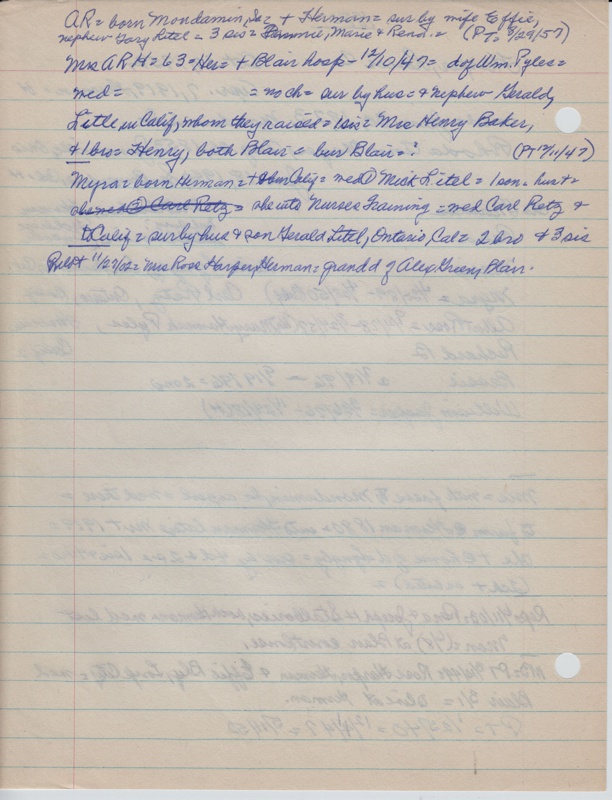 A.R = born Mondamin, Ia = + Herman = sur by wife Effie,
nephew Gary Litel = 3 sis = Fannie, Marie & Rena. = (PT= 8/29/57)
Mrs A.R.H = 63 = Her = + Blair hosp - 12/10/47 = d of Wm. Pyles =
med = = no ch = sur by hus = & nephew Gerald
Litle in Calif, whom they raised = 1 sis = Mrs Henry Baker,
& 1 bro = Henry, both Blair = bur Blair = ? (PT 12/11/47)
Myra = born Herman = + Calif = med ① Mick Litel = 1 son = hus +
② Carl Retz = she into Nurses Training = med Carl Retz &
+ Calif = sur by hus & son Gerald Litel, Ontario, Cal = 2 bro & 3 sis
11/27/02 = Mrs Rose Harper, Herman = grand d of Alex , Blair.